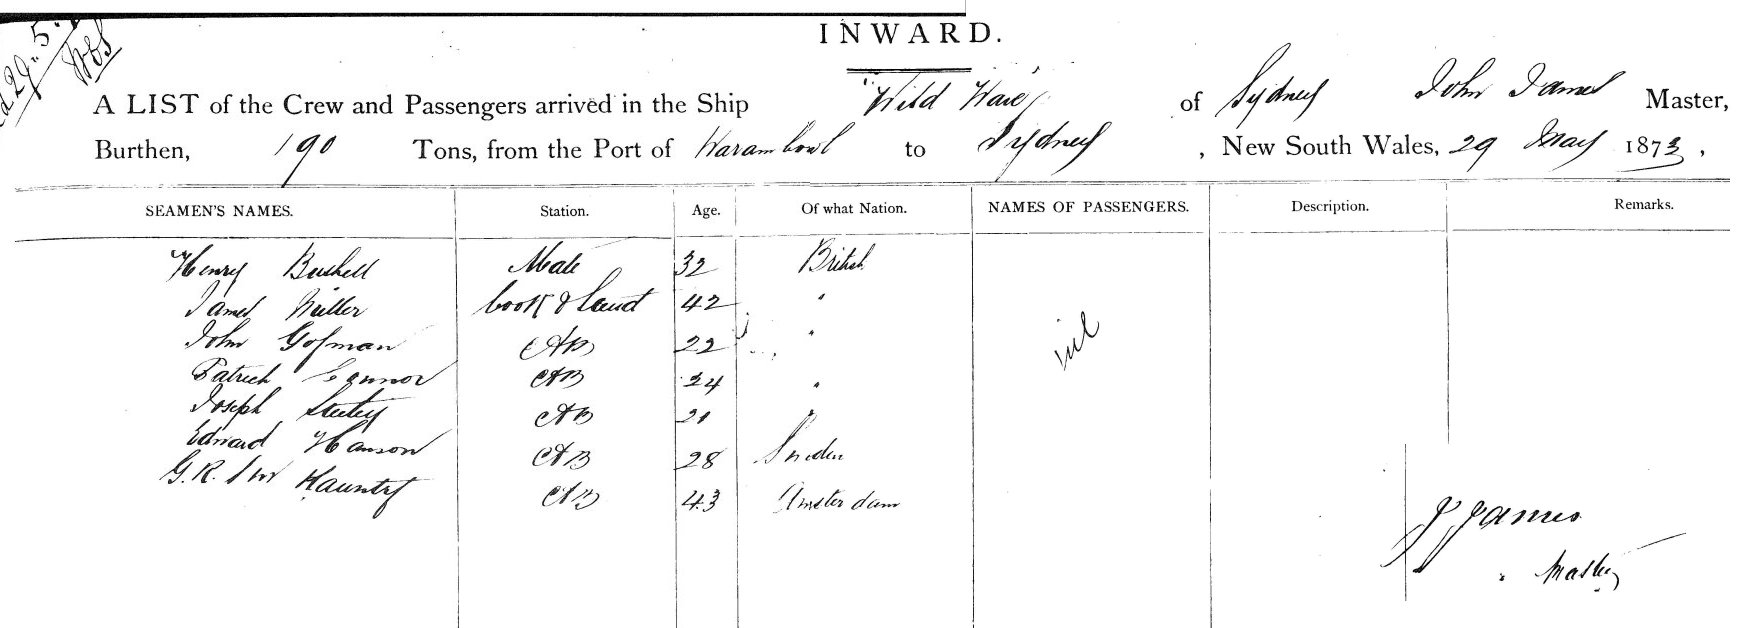 29.5.
INWARD.
A LIST of the Crew and Passengers arrived in the Ship "Wild Wave" of Sydney John James Master,
Burthen, 190 Tons, from the Port of Warambool to Sydney, New South Wales, 29 May 1873,
SEAMEN'S NAMES. Station. Age. Of what Nation. NAMES OF PASSENGERS. Description. Remarks.
Henry Bushell Mate 32 British
James Miller Cook & Steward 42 "
John Gofman AB 22 "
Patrick Connor AB 24 "
Joseph AB 21 "
Edward Hanson AB 28 Sweden
G. R. AB 43 Amsterdam
nil
J James
Master